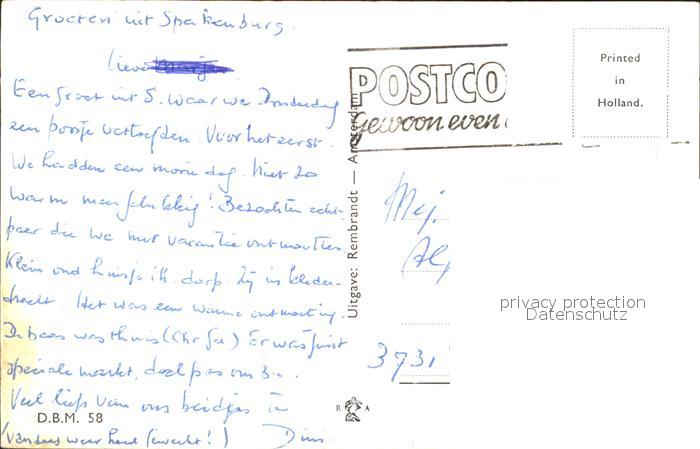 Groeten uit Spakenburg.
Lieve
Een groet uit S. waar we Donderdag
een poosje vertoefden. Voor het eerst.
We hadden een mooie dag. Niet zo
warm maar gelukkig! Bezochten echt-
paar die we met vacantie ontmoetten
Klein oud huisje ih. dorp. Zij in kleder-
dracht. Het was een warme ontmoeting.
De baas was thuis (Chr. ) Er was juist
speciale markt, doch pas om 3 u.
Veel liefs van ons beidjes
(vandaag weer hard gewerkt!) Dini
D.B.M. 58
Uitgave: Rembrandt — Amsterdam
R A
POSTCO
gewoon even
Printed
in
Holland.
Mej.
3731
privacy protection
Datenschutz